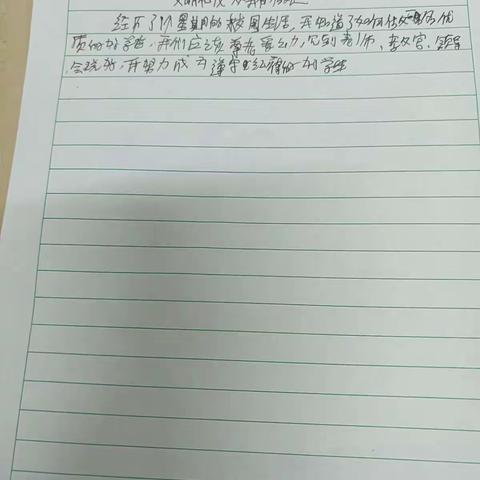 经历了1个星期的校园生活,我知道了如何做一名优
质的好学者,我们应该尊老爱幼,见到老师、教官、领导
会说好,并努力成为遵守纪律的好学生